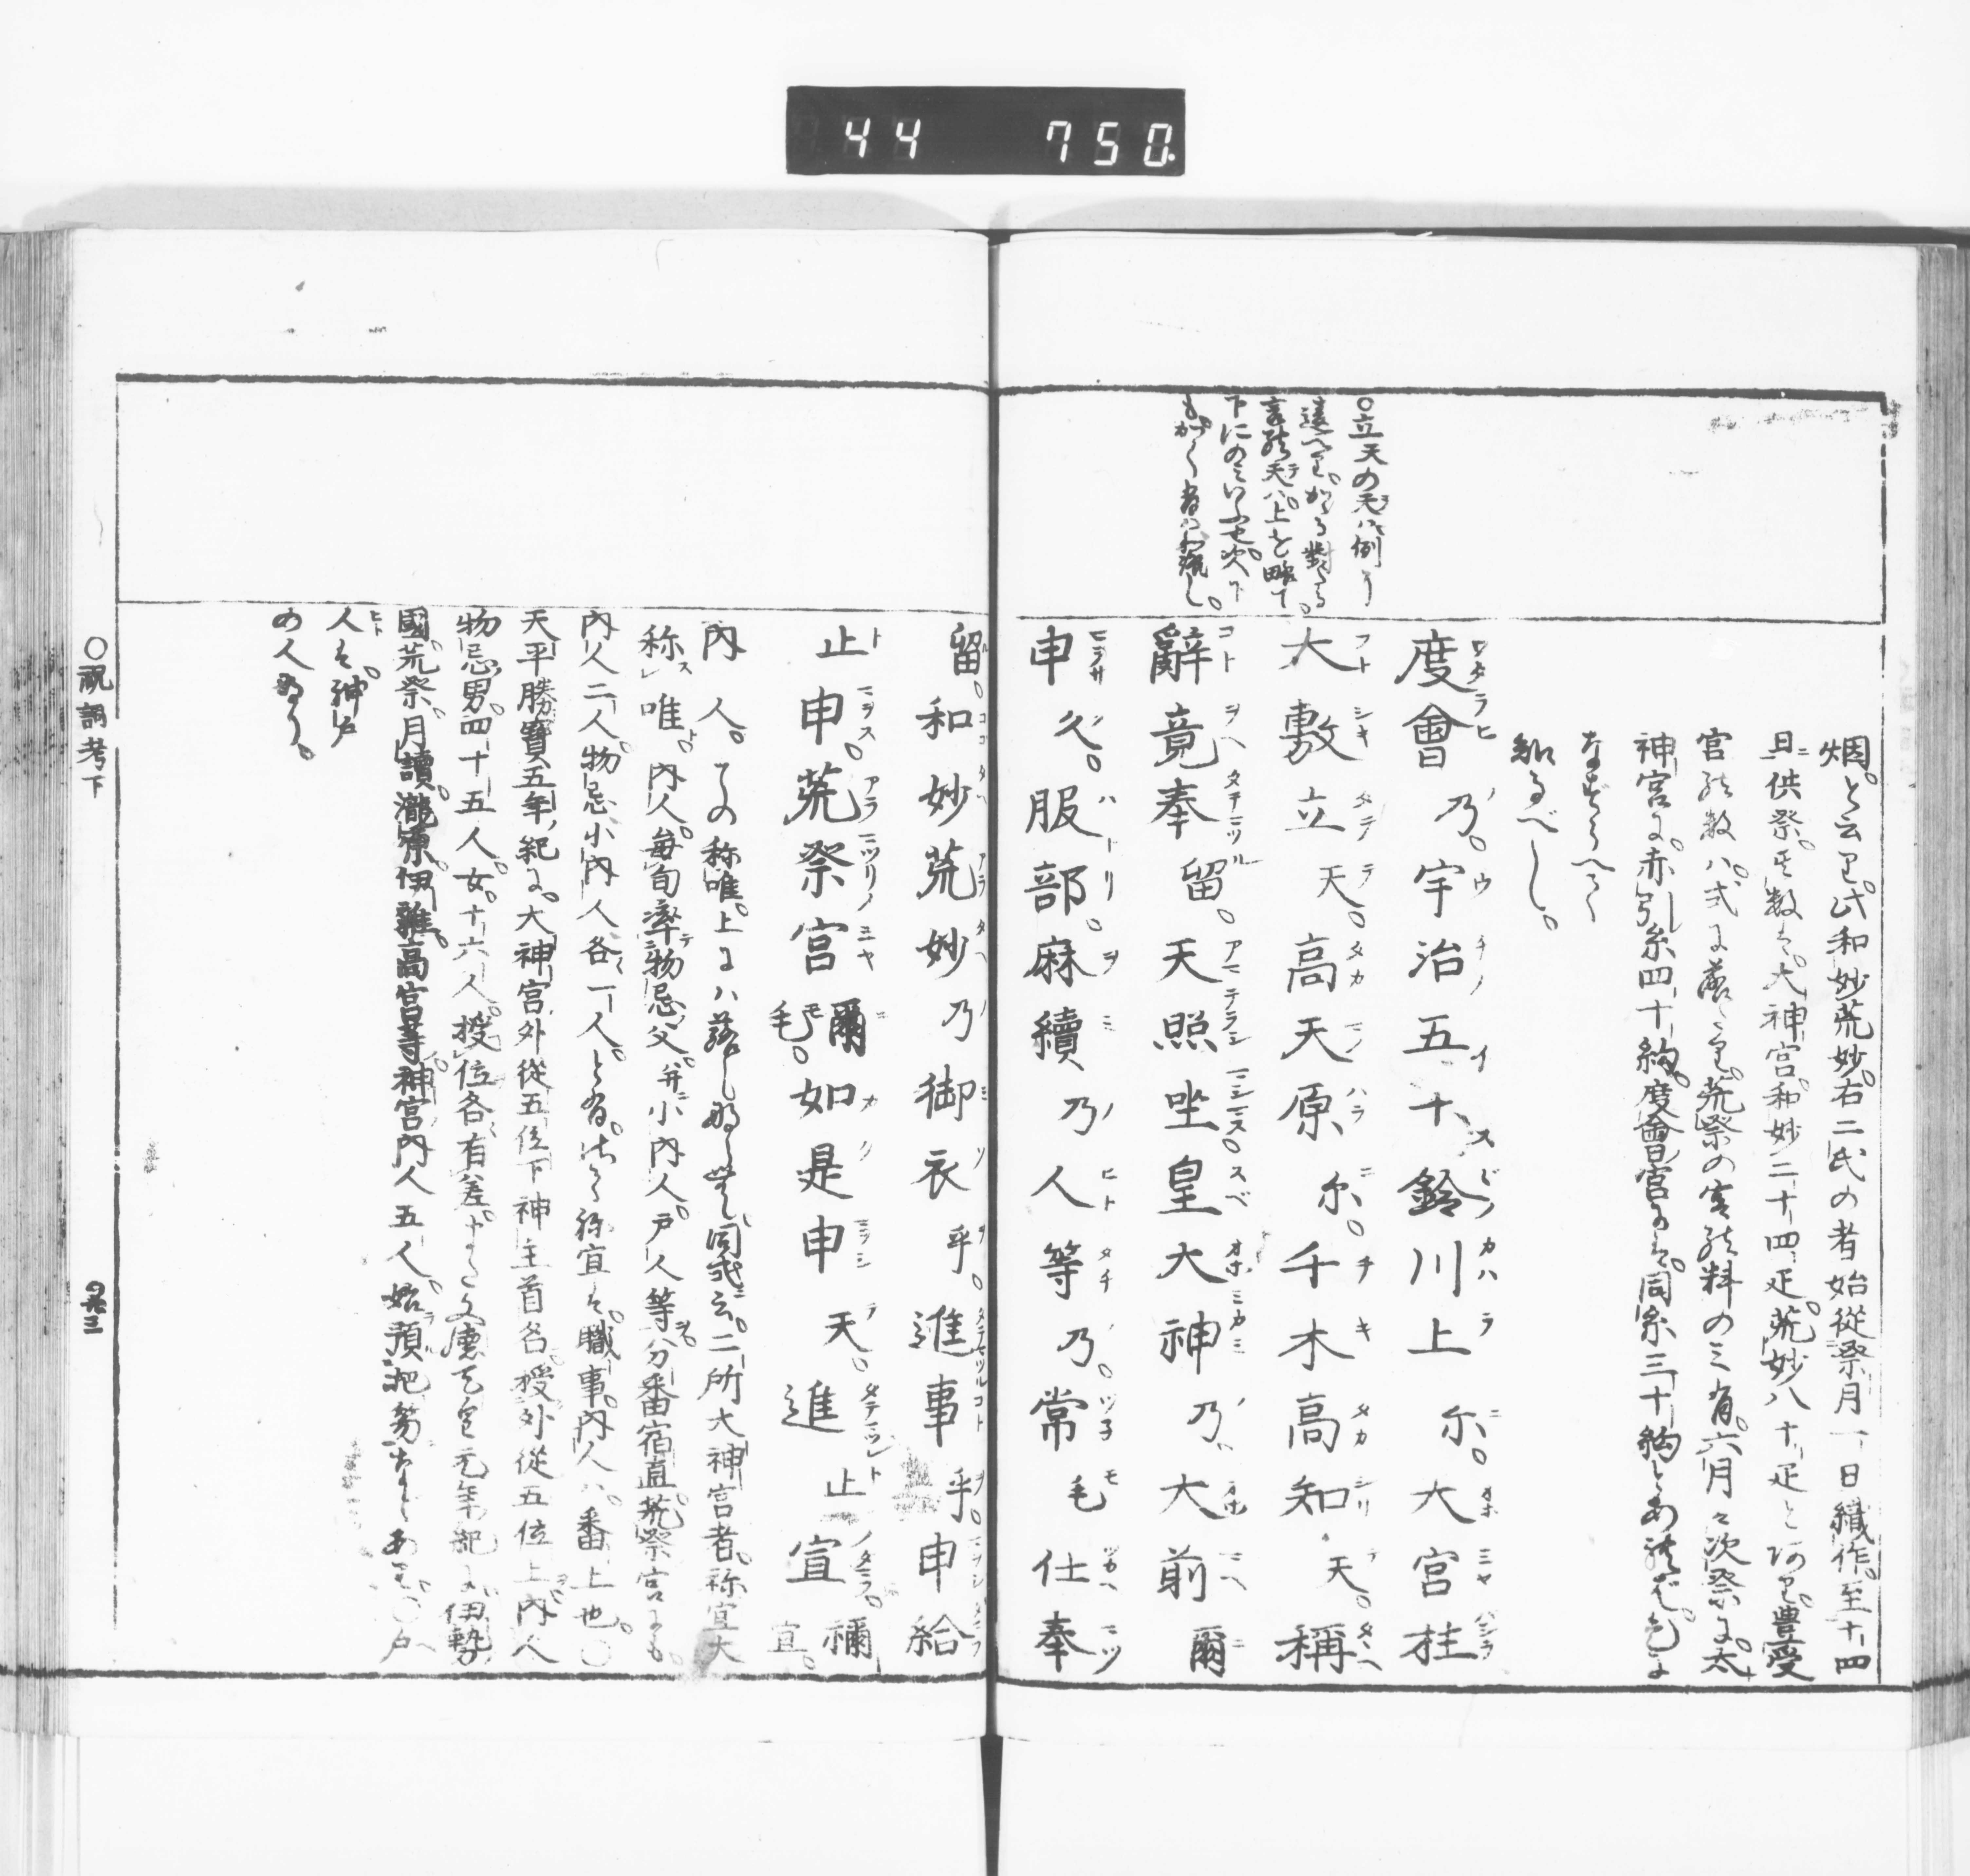 44 750
〇立天の天は例に
違へり。かゝる對たる
言の天ハ。上を略て。
下にのみいふ也。次下
烟。と云り。此和妙荒妙。右二氏の者始從祭月一日織作。至十四
日供祭。其数は。大神宮。和妙二十四疋。荒妙八十疋と
宮の数ハ。式に落たり。荒祭の宮の料のミ有。六月々次祭に。太
神宮に。赤引糸四十絇。度會宮には。同糸三十絇とあれば。
なずらへて
知るべし。
度會乃。宇治五十鈴川上尓。大宮柱
大敷立天。高天原尓。千木高知天。稱
辭竟奉留。天照坐皇大神乃。大前爾
申久。服部。麻續乃人等乃。常毛仕奉
留。和妙荒妙乃御衣乎。進事乎。申給
止申。荒祭宮爾毛。如是申天。進止宣 禰宜。
内人。の称唯。上にハ落し 同式云。二所大神宮者。祢宜大
内人。毎旬率物忌父。并小内人。戸人等。分番宿直。荒祭宮
内人二人。物忌小内人各一人。と有。 祢宜は。職事。内人ハ。番上也。〇
天平勝寶五年紀に。大神宮外從五位下神主首名。授外從五位上。内人
物忌男。四十五人。女。十六人。授位各有差。 元年記に。伊勢
國。荒祭。月讀。瀧原。伊雜。高宮等。神宮内人五人。始預把笏 とあり。〇戸
人は。神戸
の人なり。
〇祝詞考下